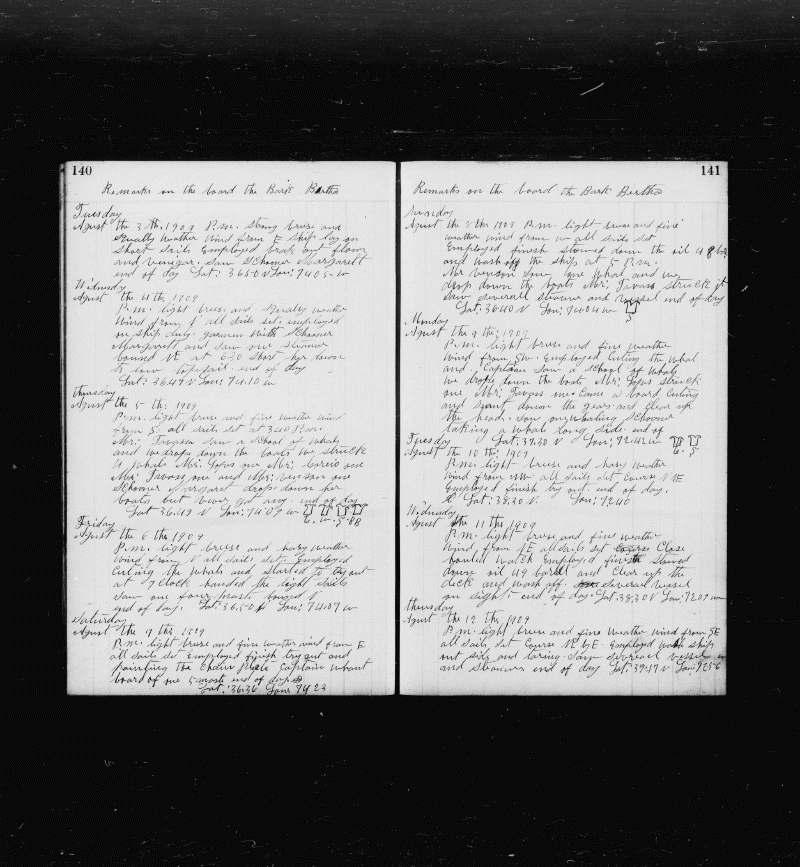 140
Remarks on the board the Bark Bertha
Tuesday
Agust the 3 th. 1909 P.m. Strong breese and
Squally weather wind from E ship lay on
short sails Employed brak out flour
and venigar. saw Schooner Margarett
end of day Lat: 36.50 N Lon: 74.05 w
Wednesday
Agust the 4 th. 1909
P.m. light breese and Squally weather
Wind from all sails set. employed
on ship duty. gammen with Schooner
Margarett and saw one steamer
bound NE at 6.30 short her down
to low topsail. end of day
Lat: 36.47 N Lon: 74.10 w
thursday
Agust the 5 th. 1909
P.m. light breese and fine weather wind
from S. all sails set at 3.40 P.m.
Mr: Tavoss saw a school of whals
and we drope down the boats we struck
4 whals Mr: Gomes one Mr: one
Mr: Tavoss one and Mr: Senson one
Schooner Margaret drope down her
boats but never got any. end of day
Lat 36.49 N Lon: 74.09 w
Friday
Agust the 6 th 1909
P.m. light breese and hasy weather
Wind from N all sails set. Employed
Cuting the whals and started to try out
at 7 Clock handed the light sails
Saw one four masts bound N
end of day. Lat: 36.50 N Lon: 74.07 w
Saturday
Agust the 7 th 1909
P.m. light breese and fine weather wind from E
all sails set Employed finish try out and
painting the chain plate Captain whant
board of one 5 masts end of day
Lat: 36.36 Lon: 74 23
141
Remarks on the board the Bark Bertha
Sunday
Agust the 8 th 1909 P.m. light breese and fine
weather wind from w all sails set
Employed finish stowed down the oil 48 bbls
and wash off the ship at 5 P.m.
Mr Senson saw one whal and we
drop down the boats Mr: Tavoss struck it
saw severall steamer and vessel end of day
Lat: 36.40 N Lon: 74.04 w
Monday
Agust the 9 th: 1909
P.m. light breese and fine weather
Wind from SW. Employed Cuting the whal
and Captain saw a school of whals
we drope down the boats Mr: Gomes struck
one Mr: Tavoss one. Came a board Cuting
and down the gears and Clear up
the head. saw one whaling Schooner
taking a whal long side end of
Tuesday Lat: 37.30 N Lon: 72.42 w
Agust the 10 th. 1909
P.m. light breese and hasy weather
Wind from NW all sails set Course N NE
Employed finish try out. end of day.
Lat: 38.30 N. Lon: 72.40
Wednesday
Agust the 11 th 1909
P.m. light breese and fine weather
Wind from NE all sails set Close
hauled watch Employed finish stowed
down oil 49 barell and Clear up the
deck and wash off. severel vessel
on sight. end of day. Lat 38.30 N Lon: 72.07 w
thursday
Agust the 12 th 1909
P.m. light breese and fine weather wind from SE
all sails set Course N E by E. Employed wash ship
out side and saw severel vessel
and steamers end of day Lat: 39.17 N Lon: 72 56